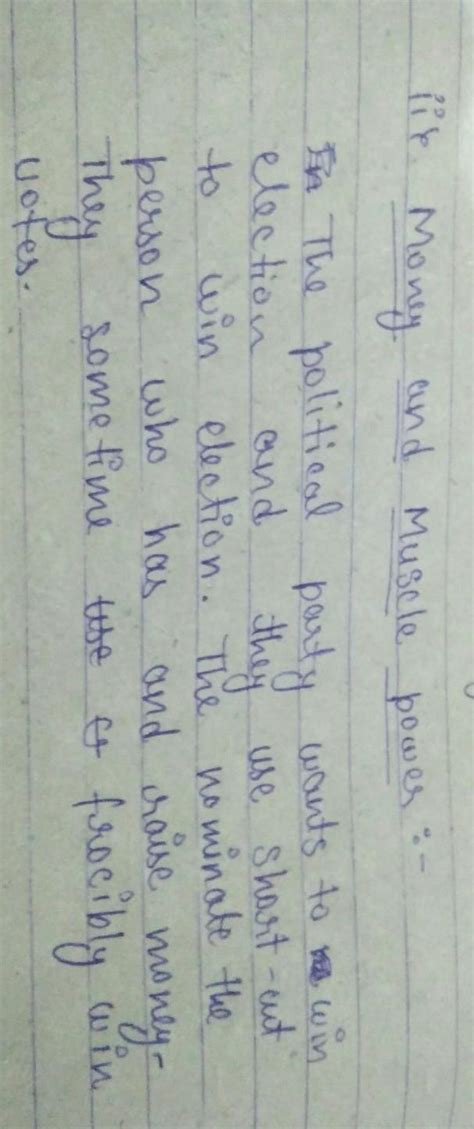 iii Money and Muscle power :-
In The political party wants to win
election and they use short-cut
to win election. The nominate the
person who has and raise money-
They sometime use frocibly win
votes.